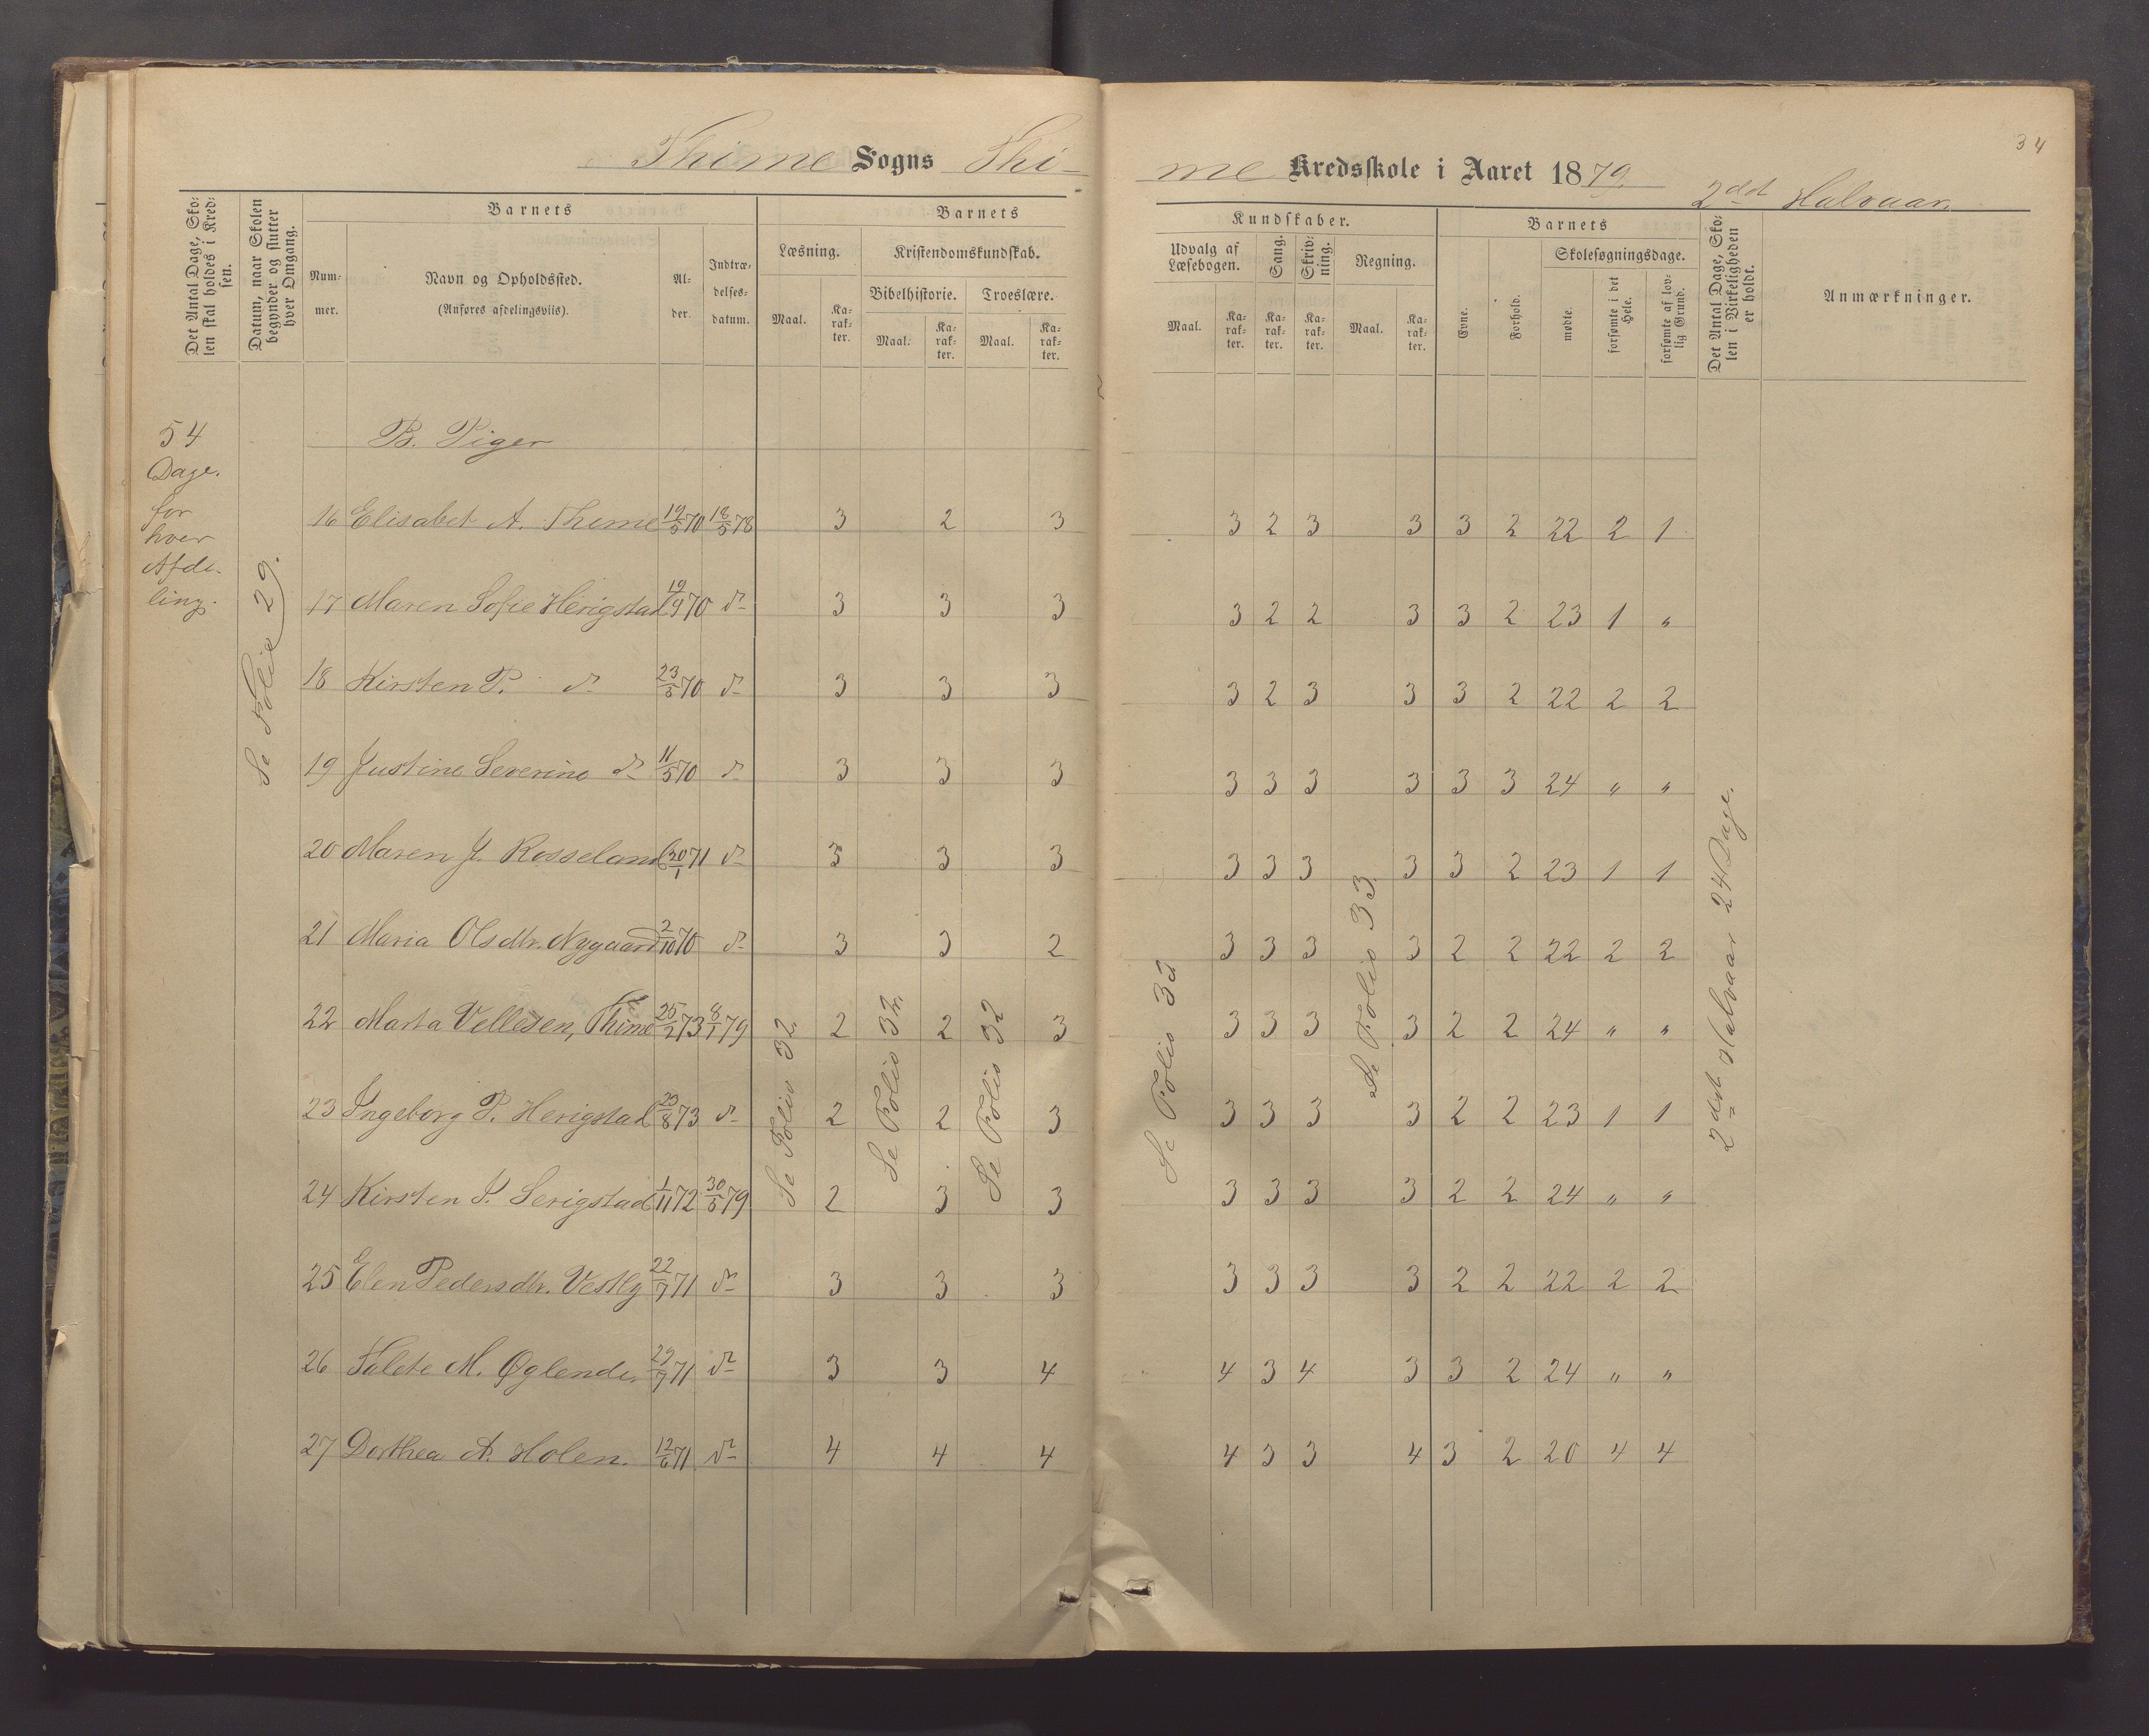 34
Thime Sogns Thi-
me Kredsskole i Aaret 1879.
2det Halvaar.
Det Antal Dage, Sko-
len skal holdes i Kred-
sen.
Datum, naar Skolen
begynder og slutter
hver Omgang.
Barnets
Num-
mer.
Navn og Opholdssted.
(Anføres afdelingsviis).
Al-
der.
Indtræ-
delses-
datum.
Barnets
Læsning.
Maal.
Ka-
rak-
ter.
Kristendomskundskab.
Bibelhistorie.
Maal.
Ka-
rak-
ter.
Troeslære.
Maal.
Ka-
rak-
ter.
Kundskaber.
Udvalg af
Læsebogen.
Maal.
Ka-
rak-
ter.
Sang.
Ka-
rak-
ter.
Skriv-
ning.
Ka-
rak-
ter.
Regning.
Maal.
Ka-
rak-
ter.
Barnets
Evne.
Forhold.
Skolesøgningsdage.
mødte.
forsømte i det
Hele.
forsømte af lov-
lig Grund.
Det Antal Dage, Sko-
len i Virkeligheden
er holdt.
Anmærkninger.
54
Dage.
for
hver
Afde-
ling.
Se Folie 29.
B. Piger
16 Elisabet A. Thime 19/5 70 18/5 78 3 2 3 3 2 3 3 3 2 22 2 1
17 Maren Sofie Herigstad 19/9 70 do 3 3 3 3 2 2 3 3 2 23 1 "
18 Kirsten P. do 23/5 70 do 3 3 3 3 2 3 3 3 2 22 2 2
19 Justine Severine do 11/5 70 do 3 3 3 3 3 3 3 3 3 24 " "
20 Maren J. Rosseland 30/1 71 do 3 3 3 3 3 3 3 3 2 23 1 1
21 Maria Olsdtr. Nygaard 2/10 70 do 3 3 2 3 3 3 3 2 2 22 2 2
22 Marta Vellesen, Thime 25/2 73 8/1 79 2 2 3 3 3 3 3 2 2 24 " "
23 Ingeborg P. Herigstad 23/8 73 do 2 2 3 3 3 3 3 2 2 23 1 1
24 Kirsten J. Serigstad 1/11 72 30/5 79 2 3 3 3 3 3 3 2 2 24 " "
25 Elen Pedersdtr. Vestly 22/7 71 do 3 3 3 3 3 3 3 2 2 22 2 2
26 Talete M. Øglende. 29/9 71 do 3 3 4 4 3 4 3 3 2 24 " "
27 Dorthea A. Holen. 12/6 71 do 4 4 4 4 3 3 4 3 2 20 4 4
Se Folio 32
Se Folio 32.
Se Folio 32
Se Folio 33
Se Folio 33.
2det Halvaar 24 Dage.